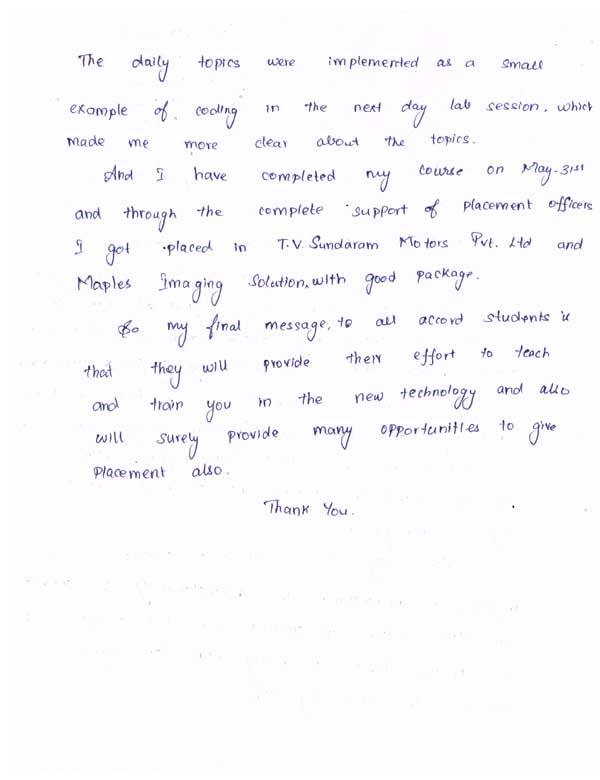 The daily topics were implemented as a small
example of coding in the next day lab session. which
made me more clear about the topics.
And I have completed my course on May-31st
and through the complete support of placement officers
I got placed in T.V. Sundaram Motors Pvt. Ltd and
Maples Imaging Solution, with good package.
So my final message, to all accord students is
that they will provide their effort to teach
and train you in the new technology and also
will surely provide many opportunities to give
placement also.
Thank You.